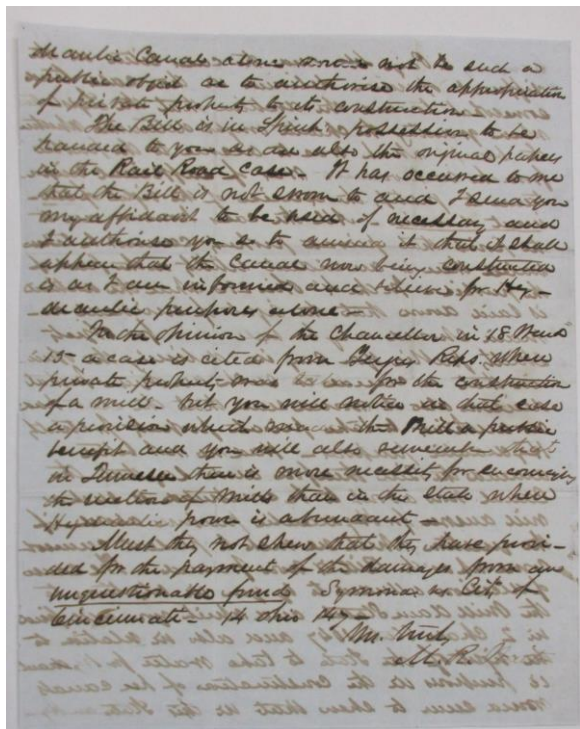 draulic Canal alone would not be such a
public object as to authorise the appropriation
of private property to its construction —
The Bill is in Spink's possession to be
handed to you as are also the original papers
in the Rail Road Case — It has occurred to me
that the Bill is not sworn to and I send you
my affidavit to be used if necessary and
I authorise you so to amend it that it shall
appear that the Canal now being constructed
is as I am informed and believe for Hy-
draulic purposes alone —
In the opinion of the Chancellor in 18 Wend
15 — a case is cited from Reps. where
private property was for the construction
of a mill — but you will notice in that case
a provision which the Mill a public
benefit and you will also remember that
in there is more necessity for encouraging
the erection of Mills than in the State where
Hydraulic power is abundant —
Must they not shew that they have provi-
ded for the payment of the damages from an
unquestionable fund Symonds vs City of
Cincinnati — 14 Ohio 147 —
M. R.